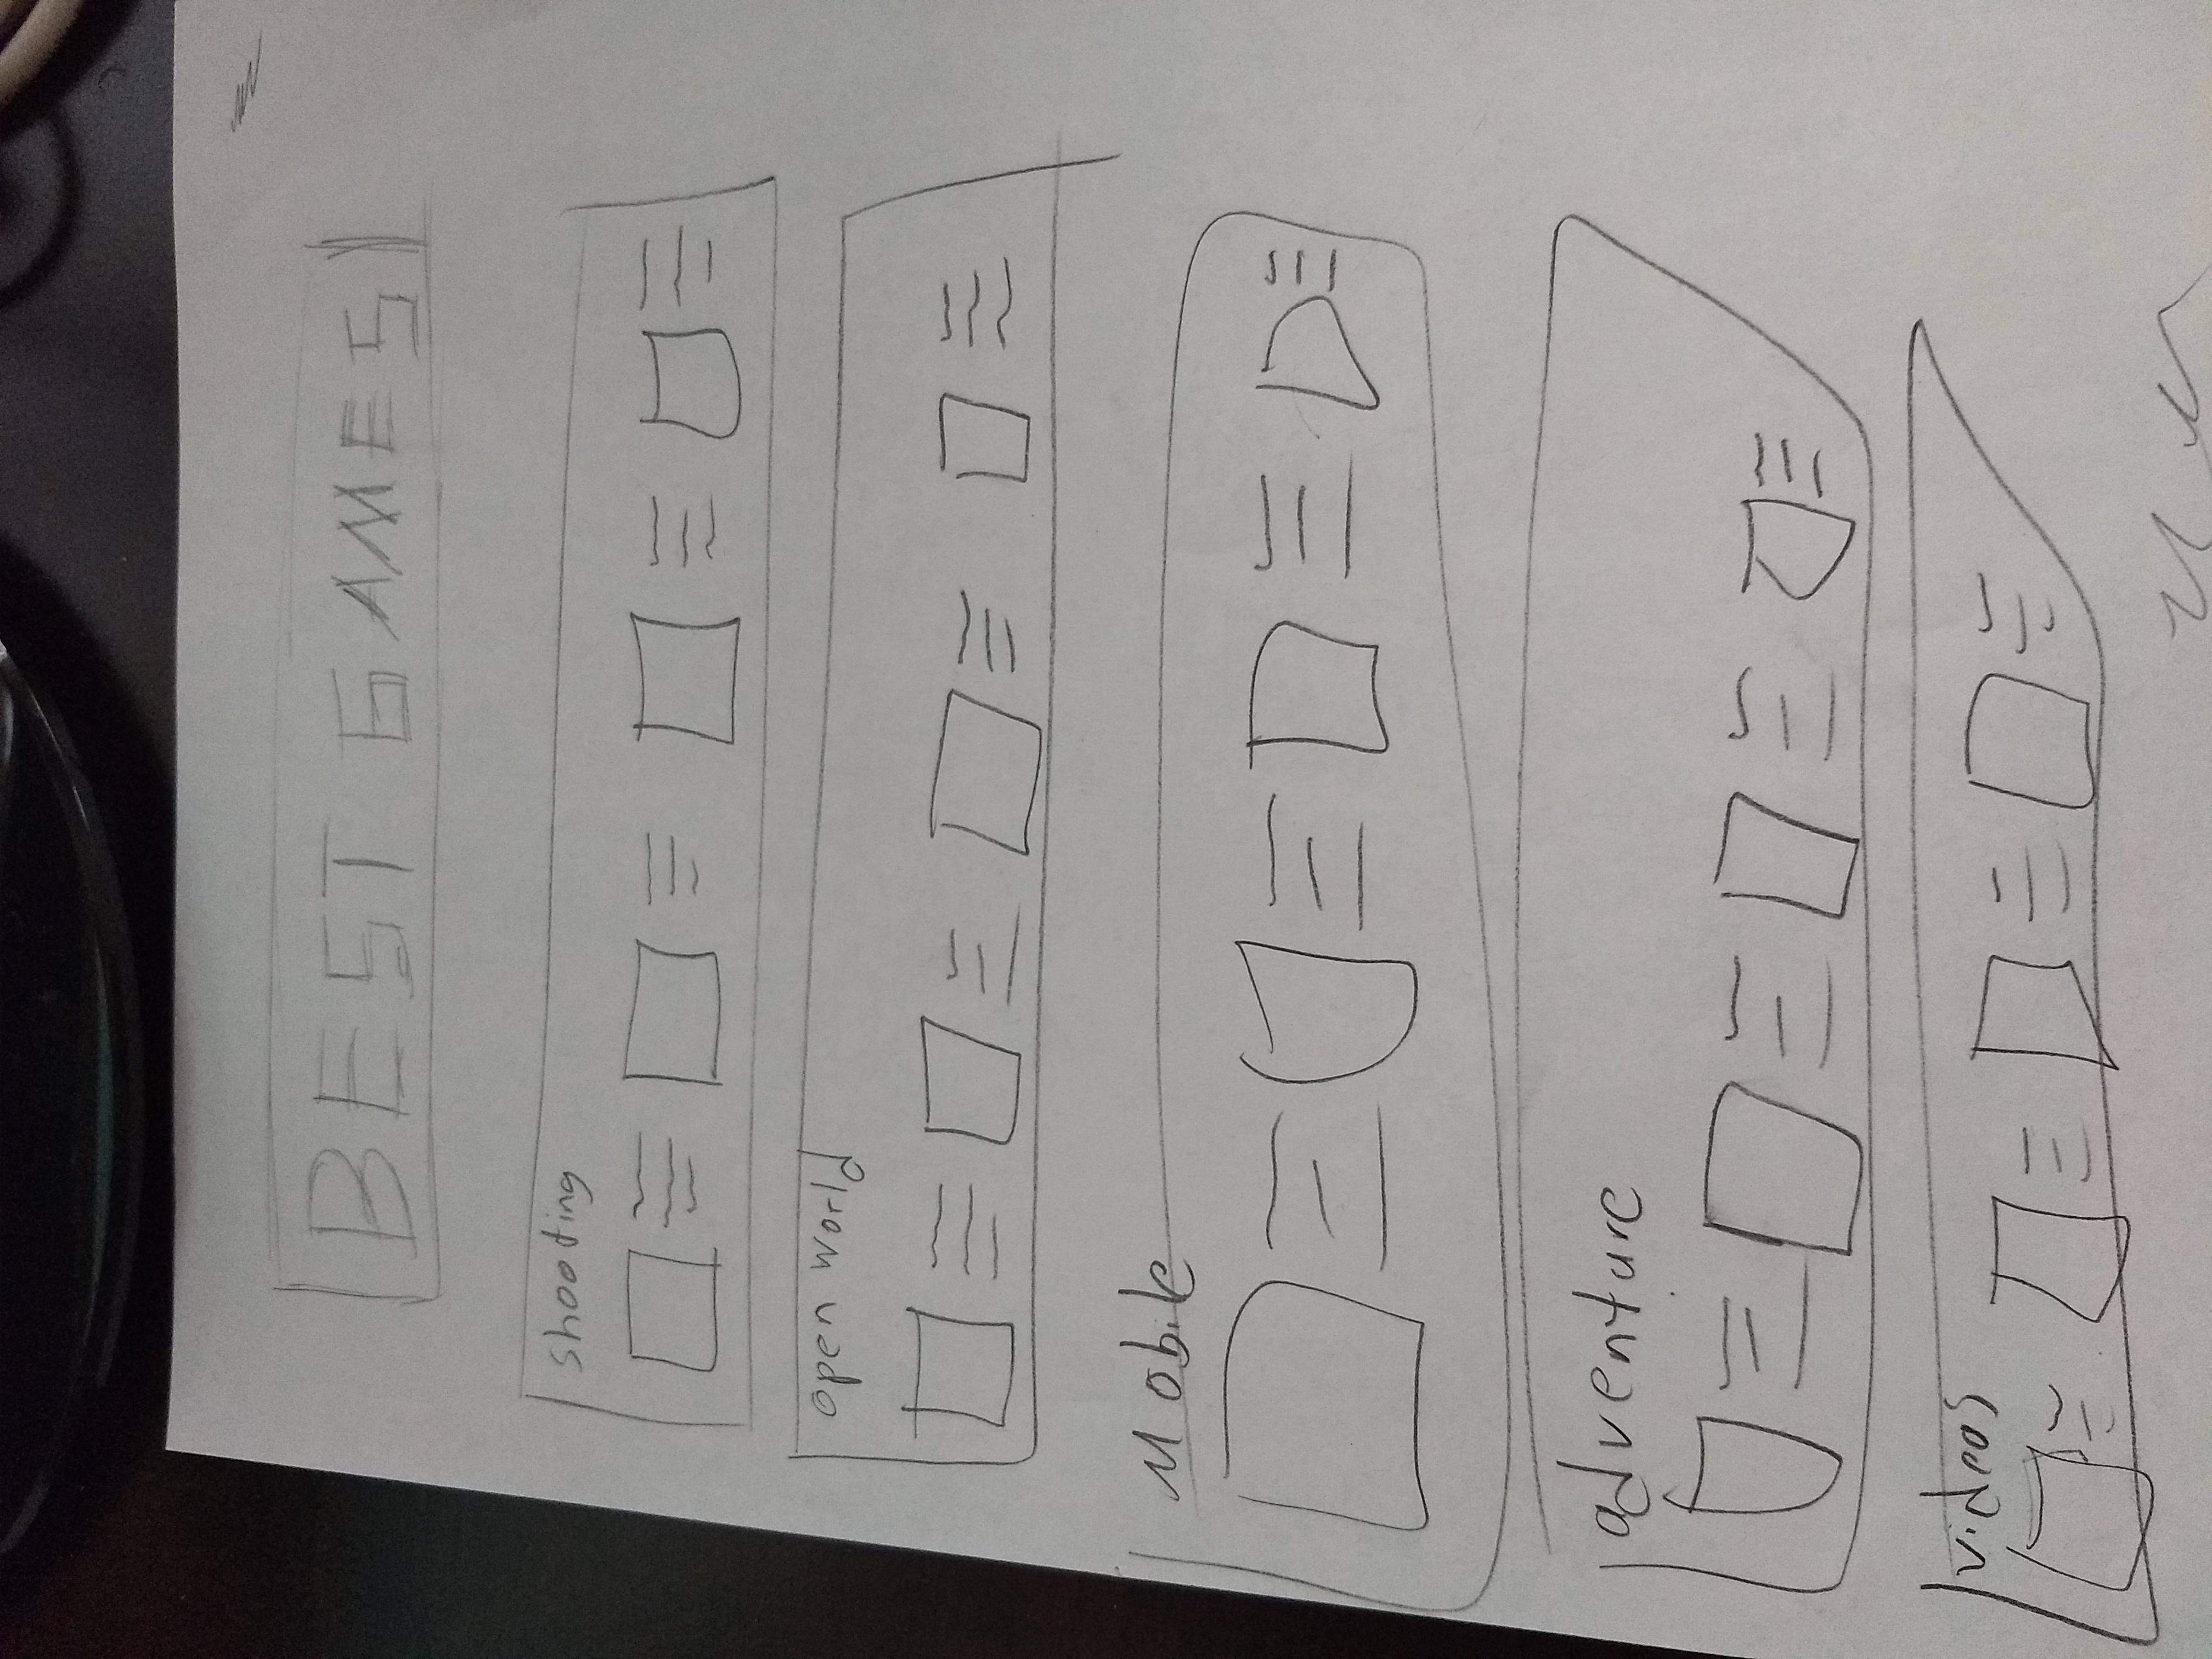 BEST GAMES
shooting
open world
Mobile
adventure